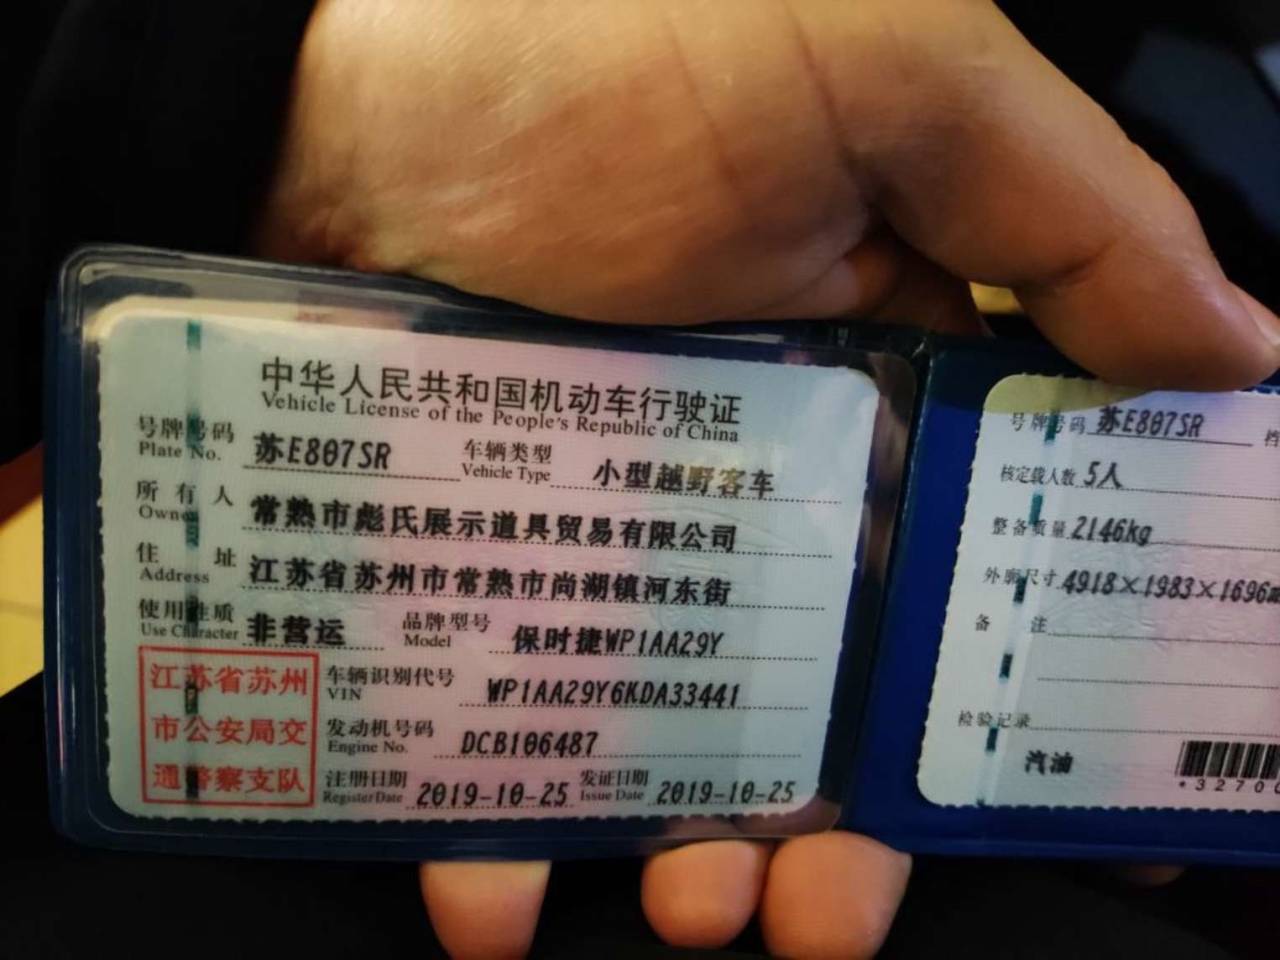 中华人民共和国机动车行驶证
Vehicle License of the People's Republic of China
号牌号码 苏E807SR 车辆类型 小型越野客车
Plate No. Vehicle Type
所有人 常熟市彪氏展示道具贸易有限公司
Owner
住址 江苏省苏州市常熟市尚湖镇河东街
Address
使用性质 非营运 品牌型号 保时捷WP1AA29Y
Use Character Model
江苏省苏州
市公安局交
通警察支队
车辆识别代号 WP1AA29Y6KDA33441
VIN
发动机号码 DCB106487
Engine No.
注册日期 2019-10-25 发证日期 2019-10-25
Register Date Issue Date
号牌号码 苏E807SR 档
核定载人数 5人
整备质量 2146kg
外廓尺寸 4918×1983×1696
备注
检验记录
汽油
*32700